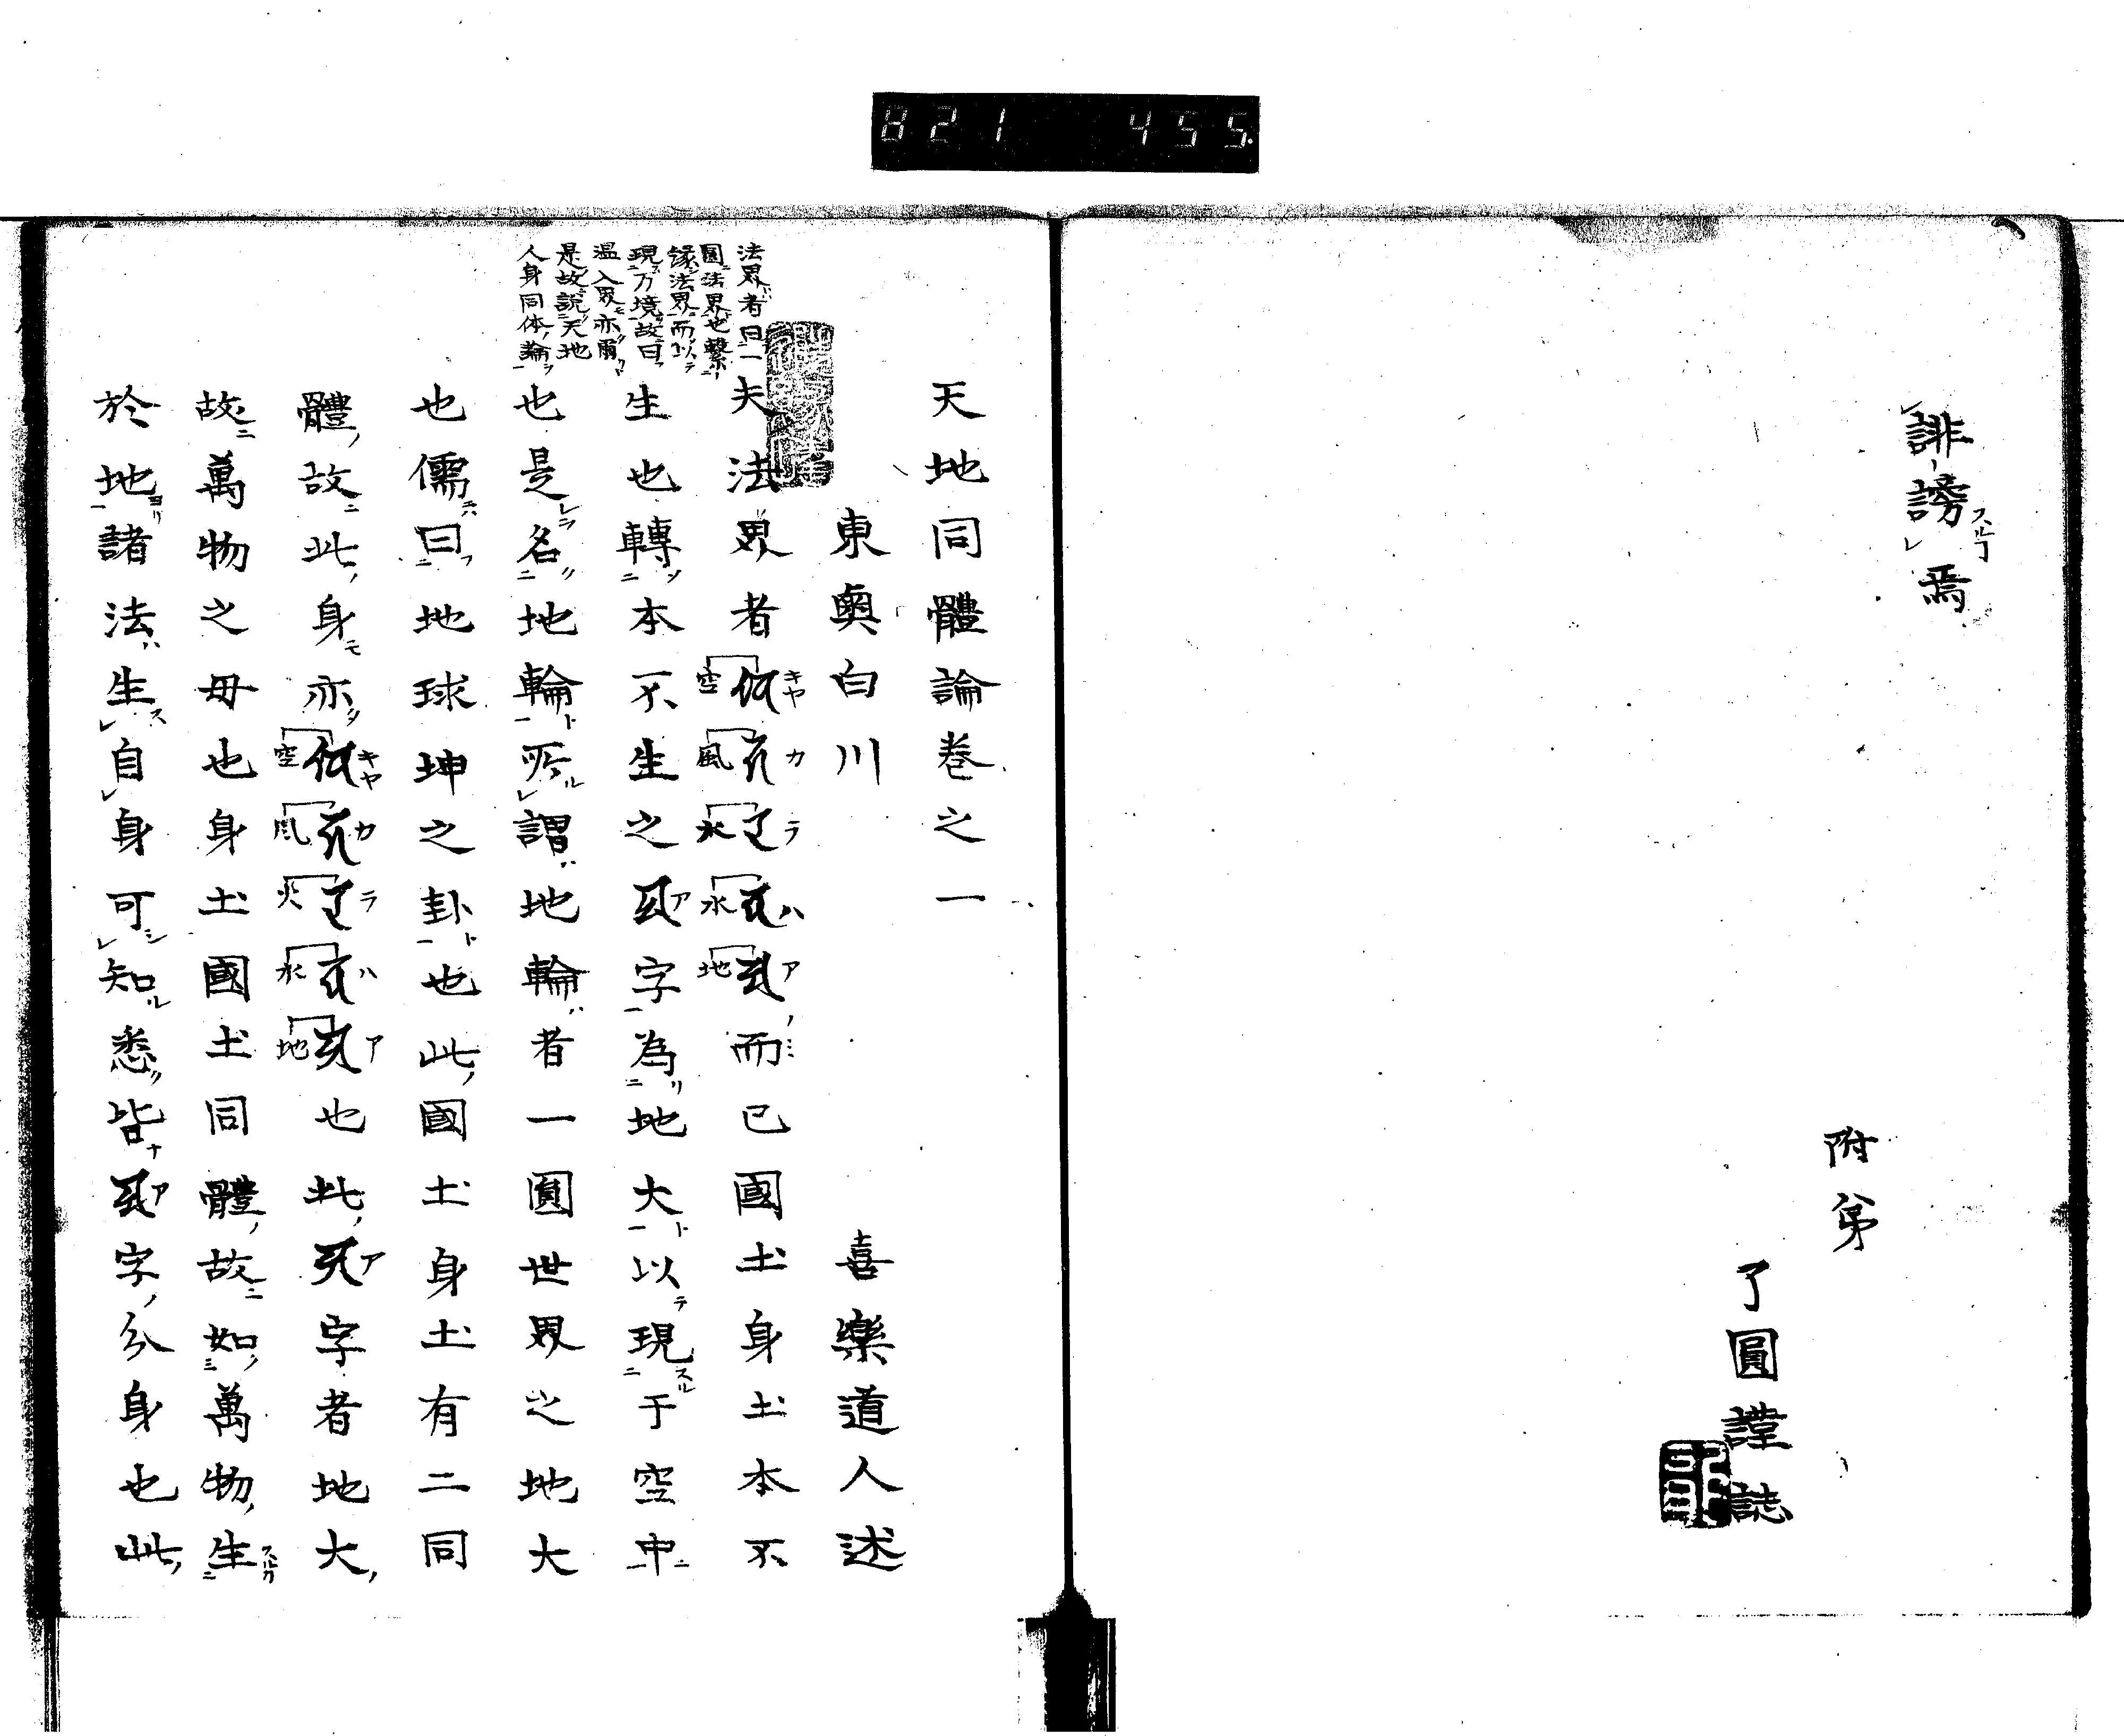 821 455
誹謗焉
附弟
了圓謹誌
天地同體論巻之一
東奥白川 喜樂道人述
法界者曰一
圓法界也繋
縁法界而以
現万境故曰
温入界亦爾
是故説天地
人身同体論
夫法界者𑖏𑖾而已國土身土本不
生也轉本不生之字為地大以現于空中
也是名地輪所謂地輪者一圓世界之地大
也儒曰地球坤之卦也此國土身土有二同
體故此身亦也此字者地大
故萬物之母也身土國土同體故如萬物生
於地諸法生自身可知悉皆字分身也此